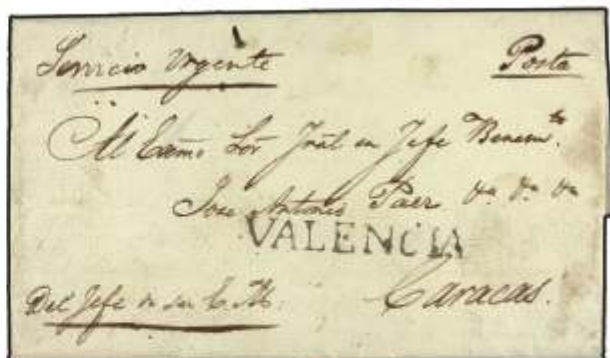 Servicio Urgente Posta
Al Exmo Sor Jral en Jefe Benem.to
Jose Antonio Paez &a &a &a
VALENCIA
Caracas.
Del Jefe de su E. M.